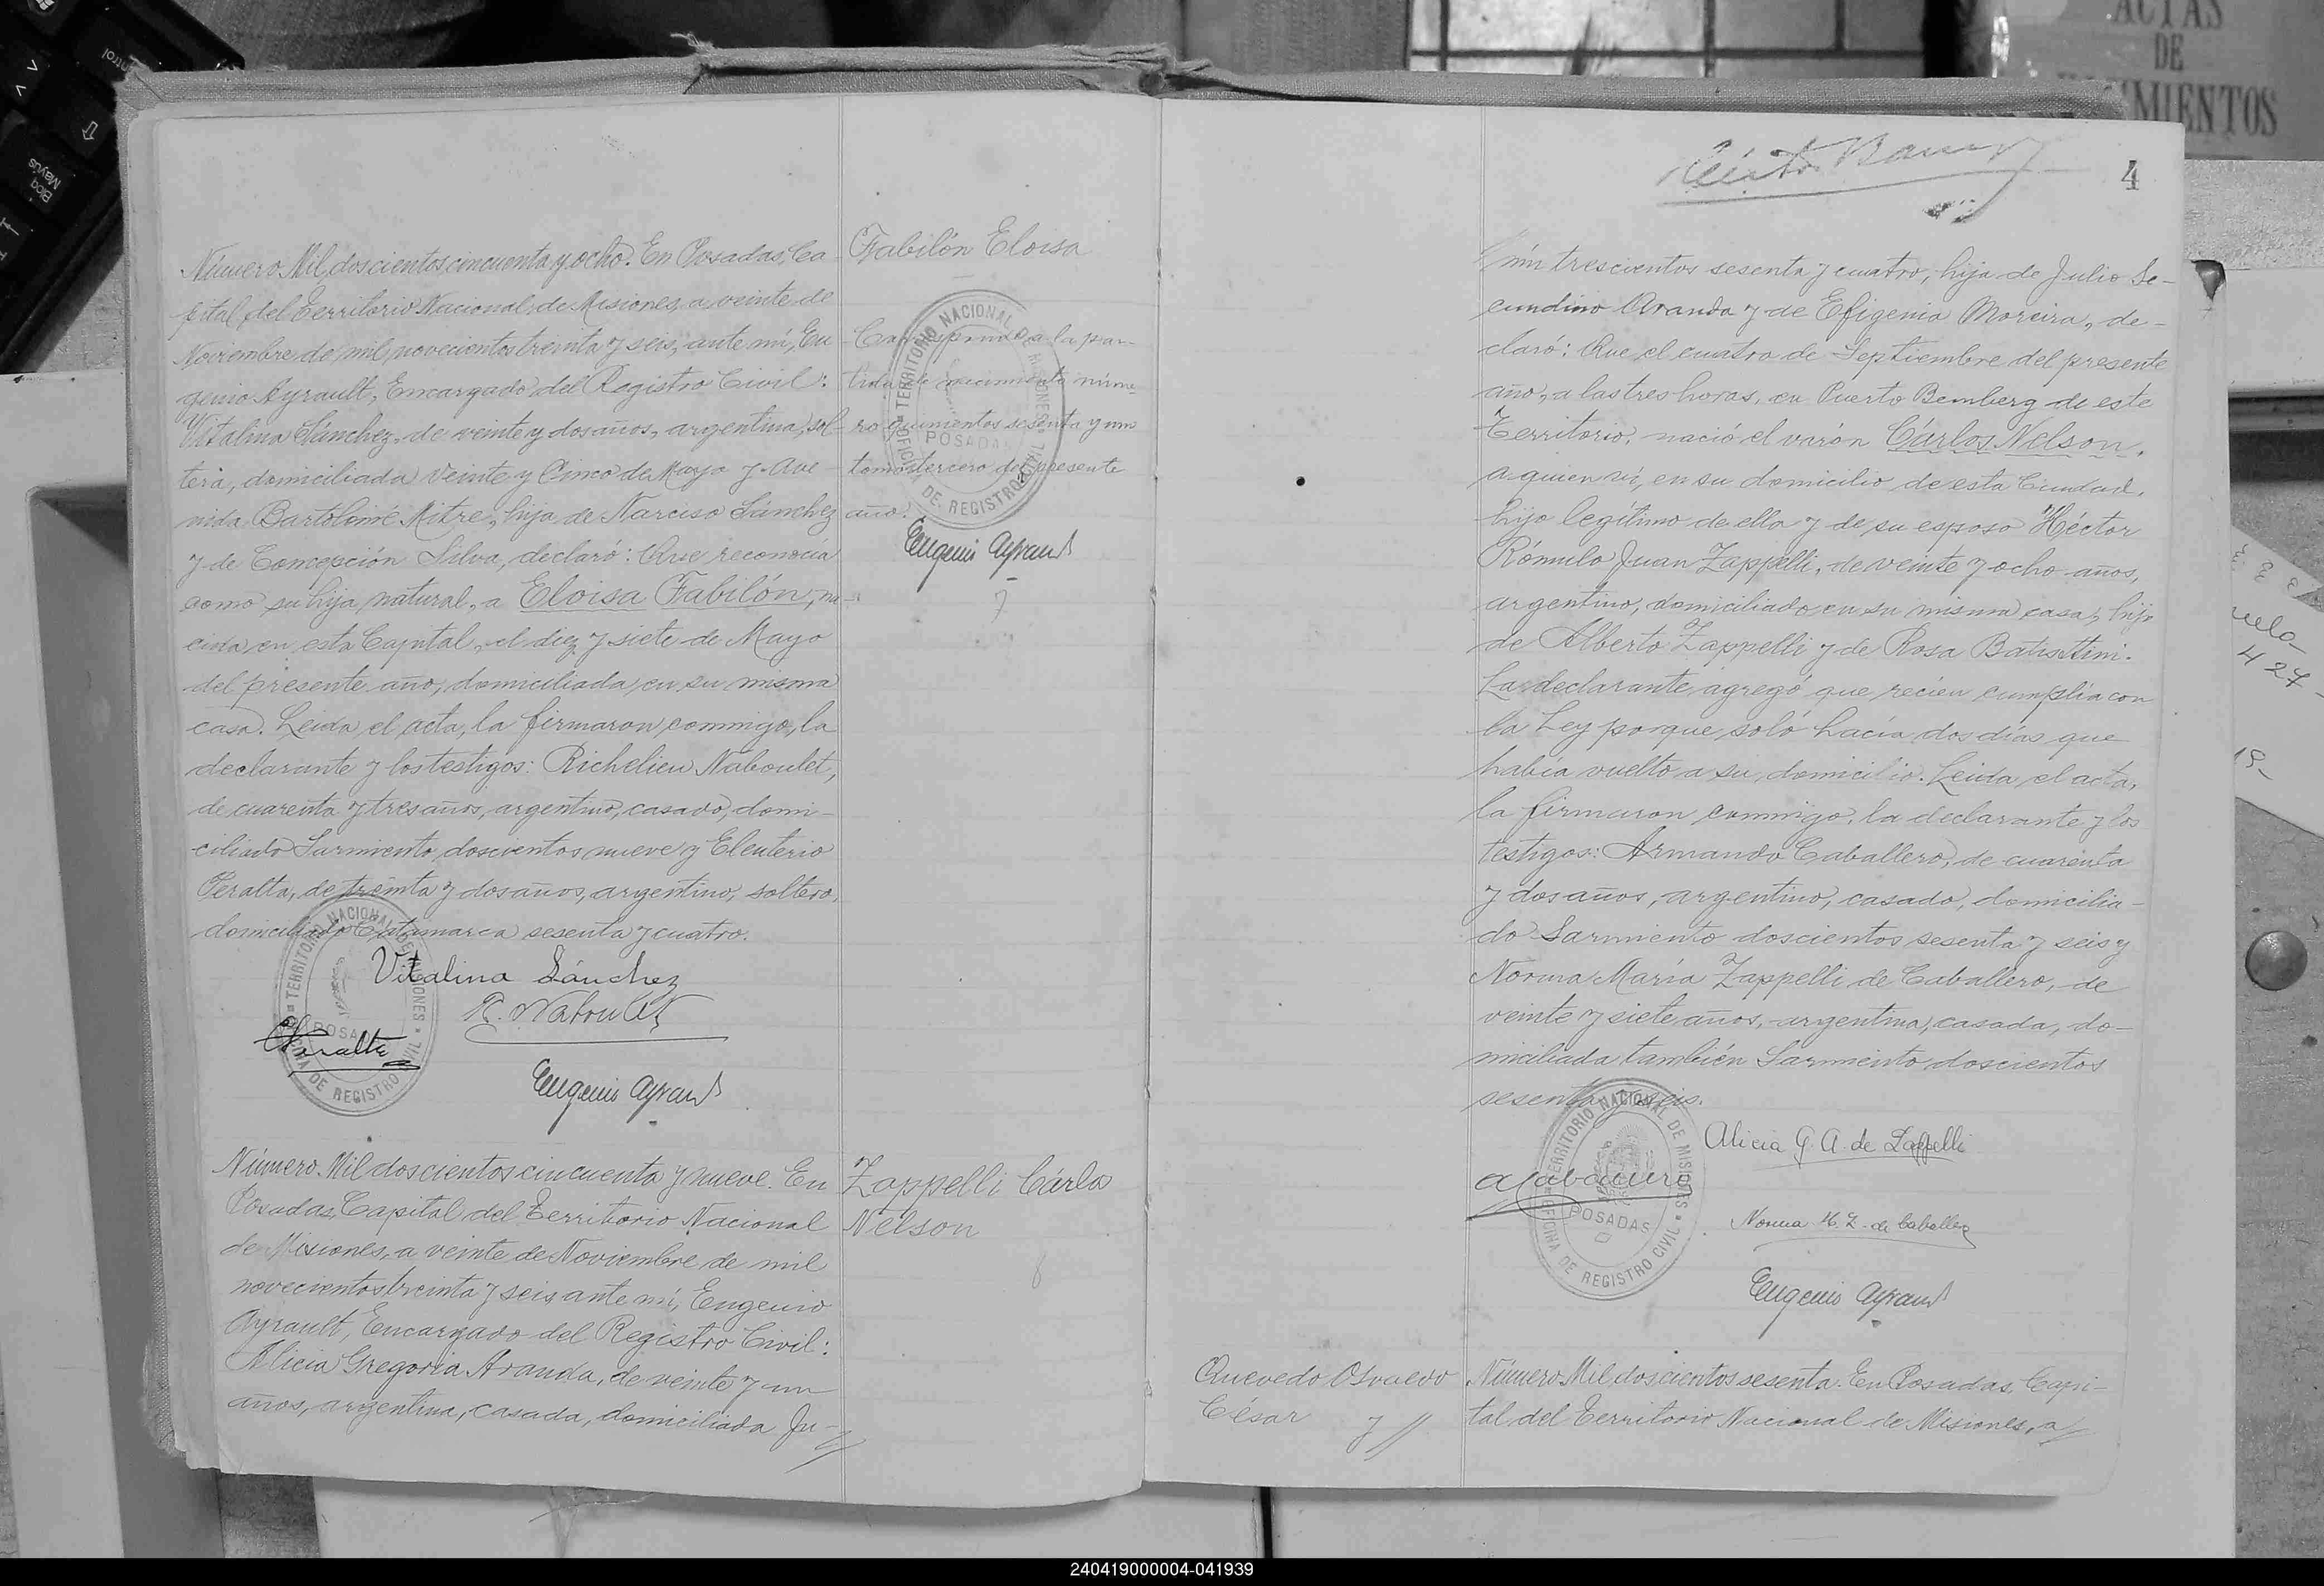 ACTAS
DE
Número Mil doscientos cincuenta y ocho. En Posadas, Ca-
pital del Territorio Nacional de Misiones, a veinte de
Noviembre de mil novecientos treinta y seis, ante mí, Eu
genio Ayrault, Encargado del Registro Civil:
Vitalina Sánchez, de veinte y dos años, argentina, sol-
tera, domiciliada Veinte y Cinco de Mayo y Ave-
nida Bartolomé Mitre, hija de Narciso Sánchez
y de Concepción Silva, declaró: Que reconocía
como su hija natural, a Eloisa Fabilón, na-
cida en esta Capital, el diez y siete de Mayo
del presente año, domiciliada en su misma
casa. Leida el acta, la firmaron conmigo, la
declarante y los testigos: Richelieu Naboulet,
de cuarenta y tres años, argentino, casado, domi-
ciliado Sarmiento doscientos nueve y Eleuterio
Peralta, de treinta y dos años, argentino, soltero,
domiciliado Catamarca sesenta y cuatro.
Vitalina Sánchez
R. Naboulet
EPeralta
Eugenio Ayrault
TERRITORIO NACIONAL DE MISIONES
POSADAS
OFICINA DE REGISTRO CIVIL
Fabilón Eloisa
Corresponde a la par-
tida de nacimiento núme-
ro quinientos sesenta y uno
tomo tercero del presente
año.
Eugenio Ayrault
7
TERRITORIO NACIONAL DE MISIONES
POSADAS
OFICINA DE REGISTRO CIVIL
Número Mil doscientos cincuenta y nueve. En
Posadas, Capital del Territorio Nacional
de Misiones, a veinte de Noviembre de mil
novecientos treinta y seis, ante mí, Eugenio
Ayrault, Encargado del Registro Civil:
Alicia Gregoria Aranda, de veinte y un
años, argentina, casada, domiciliada Ju-//
Zappelli Cárlos
Nelson
8
4
nín trescientos sesenta y cuatro, hija de Julio Se-
cundino Aranda y de Efigenia Moreira, de-
claró: Que el cuatro de Septiembre del presente
año, a las tres horas, en Puerto Bemberg de este
Territorio, nació el varón Cárlos Nelson,
a quien ví, en su domicilio de esta Ciudad,
hijo legítimo de ella y de su esposo Héctor
Rómulo Juan Zappelli, de veinte y ocho años,
argentino, domiciliado en su misma casa, hijo
de Alberto Zappelli y de Rosa Batisttini.
La declarante agregó que recien cumplía con
la Ley porque soló hacía dos días que
había vuelto a su domicilio. Leida el acta,
la firmaron conmigo, la declarante y los
testigos: Armando Caballero, de cuarenta
y dos años, argentino, casado, domicilia-
do Sarmiento doscientos sesenta y seis y
Norma María Zappelli de Caballero, de
veinte y siete años, argentina, casada, do-
miciliada también Sarmiento doscientos
sesenta y seis.
Alicia G. A. de Zappelli
ACaballero
Norma M. Z. de Caballero
Eugenio Ayrault
TERRITORIO NACIONAL DE MISIONES
POSADAS
OFICINA DE REGISTRO CIVIL
Quevedo Osvaldo
César y //
Número Mil doscientos sesenta. En Posadas, Capi-
tal del Territorio Nacional de Misiones, a//
427
240419000004-041939